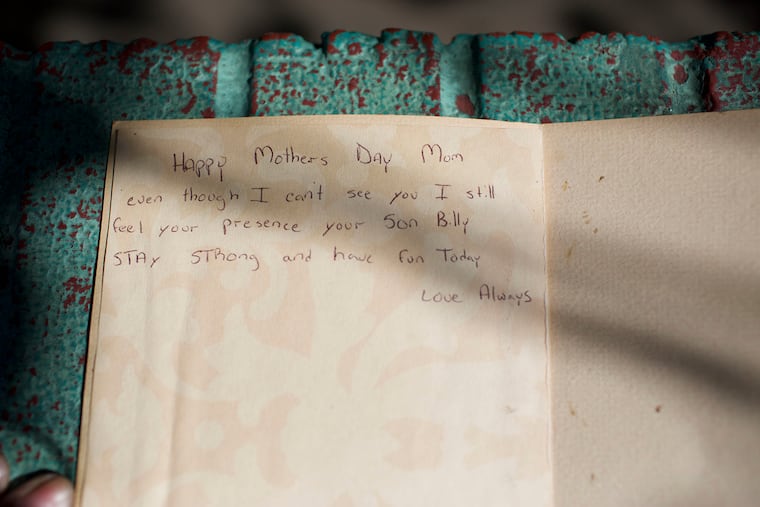 Happy Mothers Day Mom
even though I can't see you I still
feel your presence your Son Billy
STAy STRong and have fun Today
Love Always